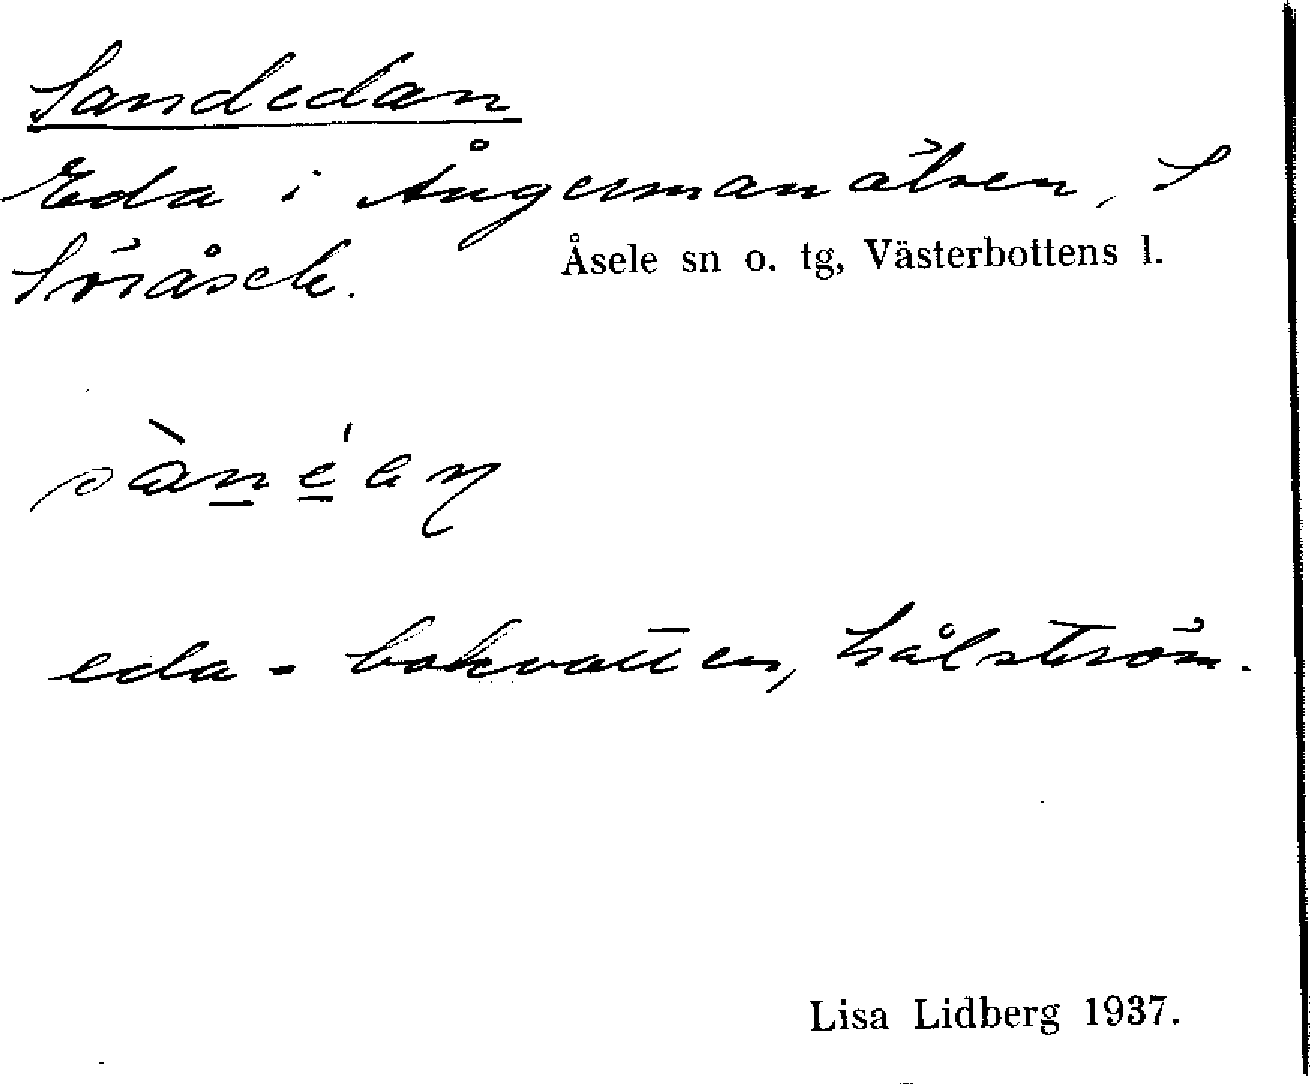 Sandedan
Eda i Ångermanälven, S
Söråsele. Åsele sn o. tg, Västerbottens l.
sàn̲é̲an
eda = bakvatten, hålström.
Lisa Lidberg 1937.